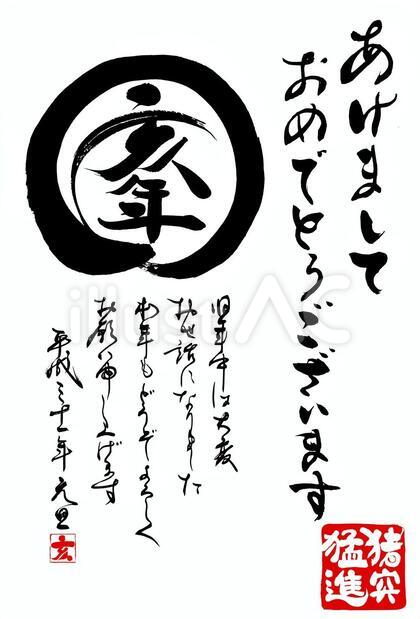 あけまして
おめでとうございます
亥年
旧年中は大変
お世話になりました
本年もどうぞよろしく
お願い申し上げます
平成三十一年 元旦
亥
猪突
猛進
illustAC